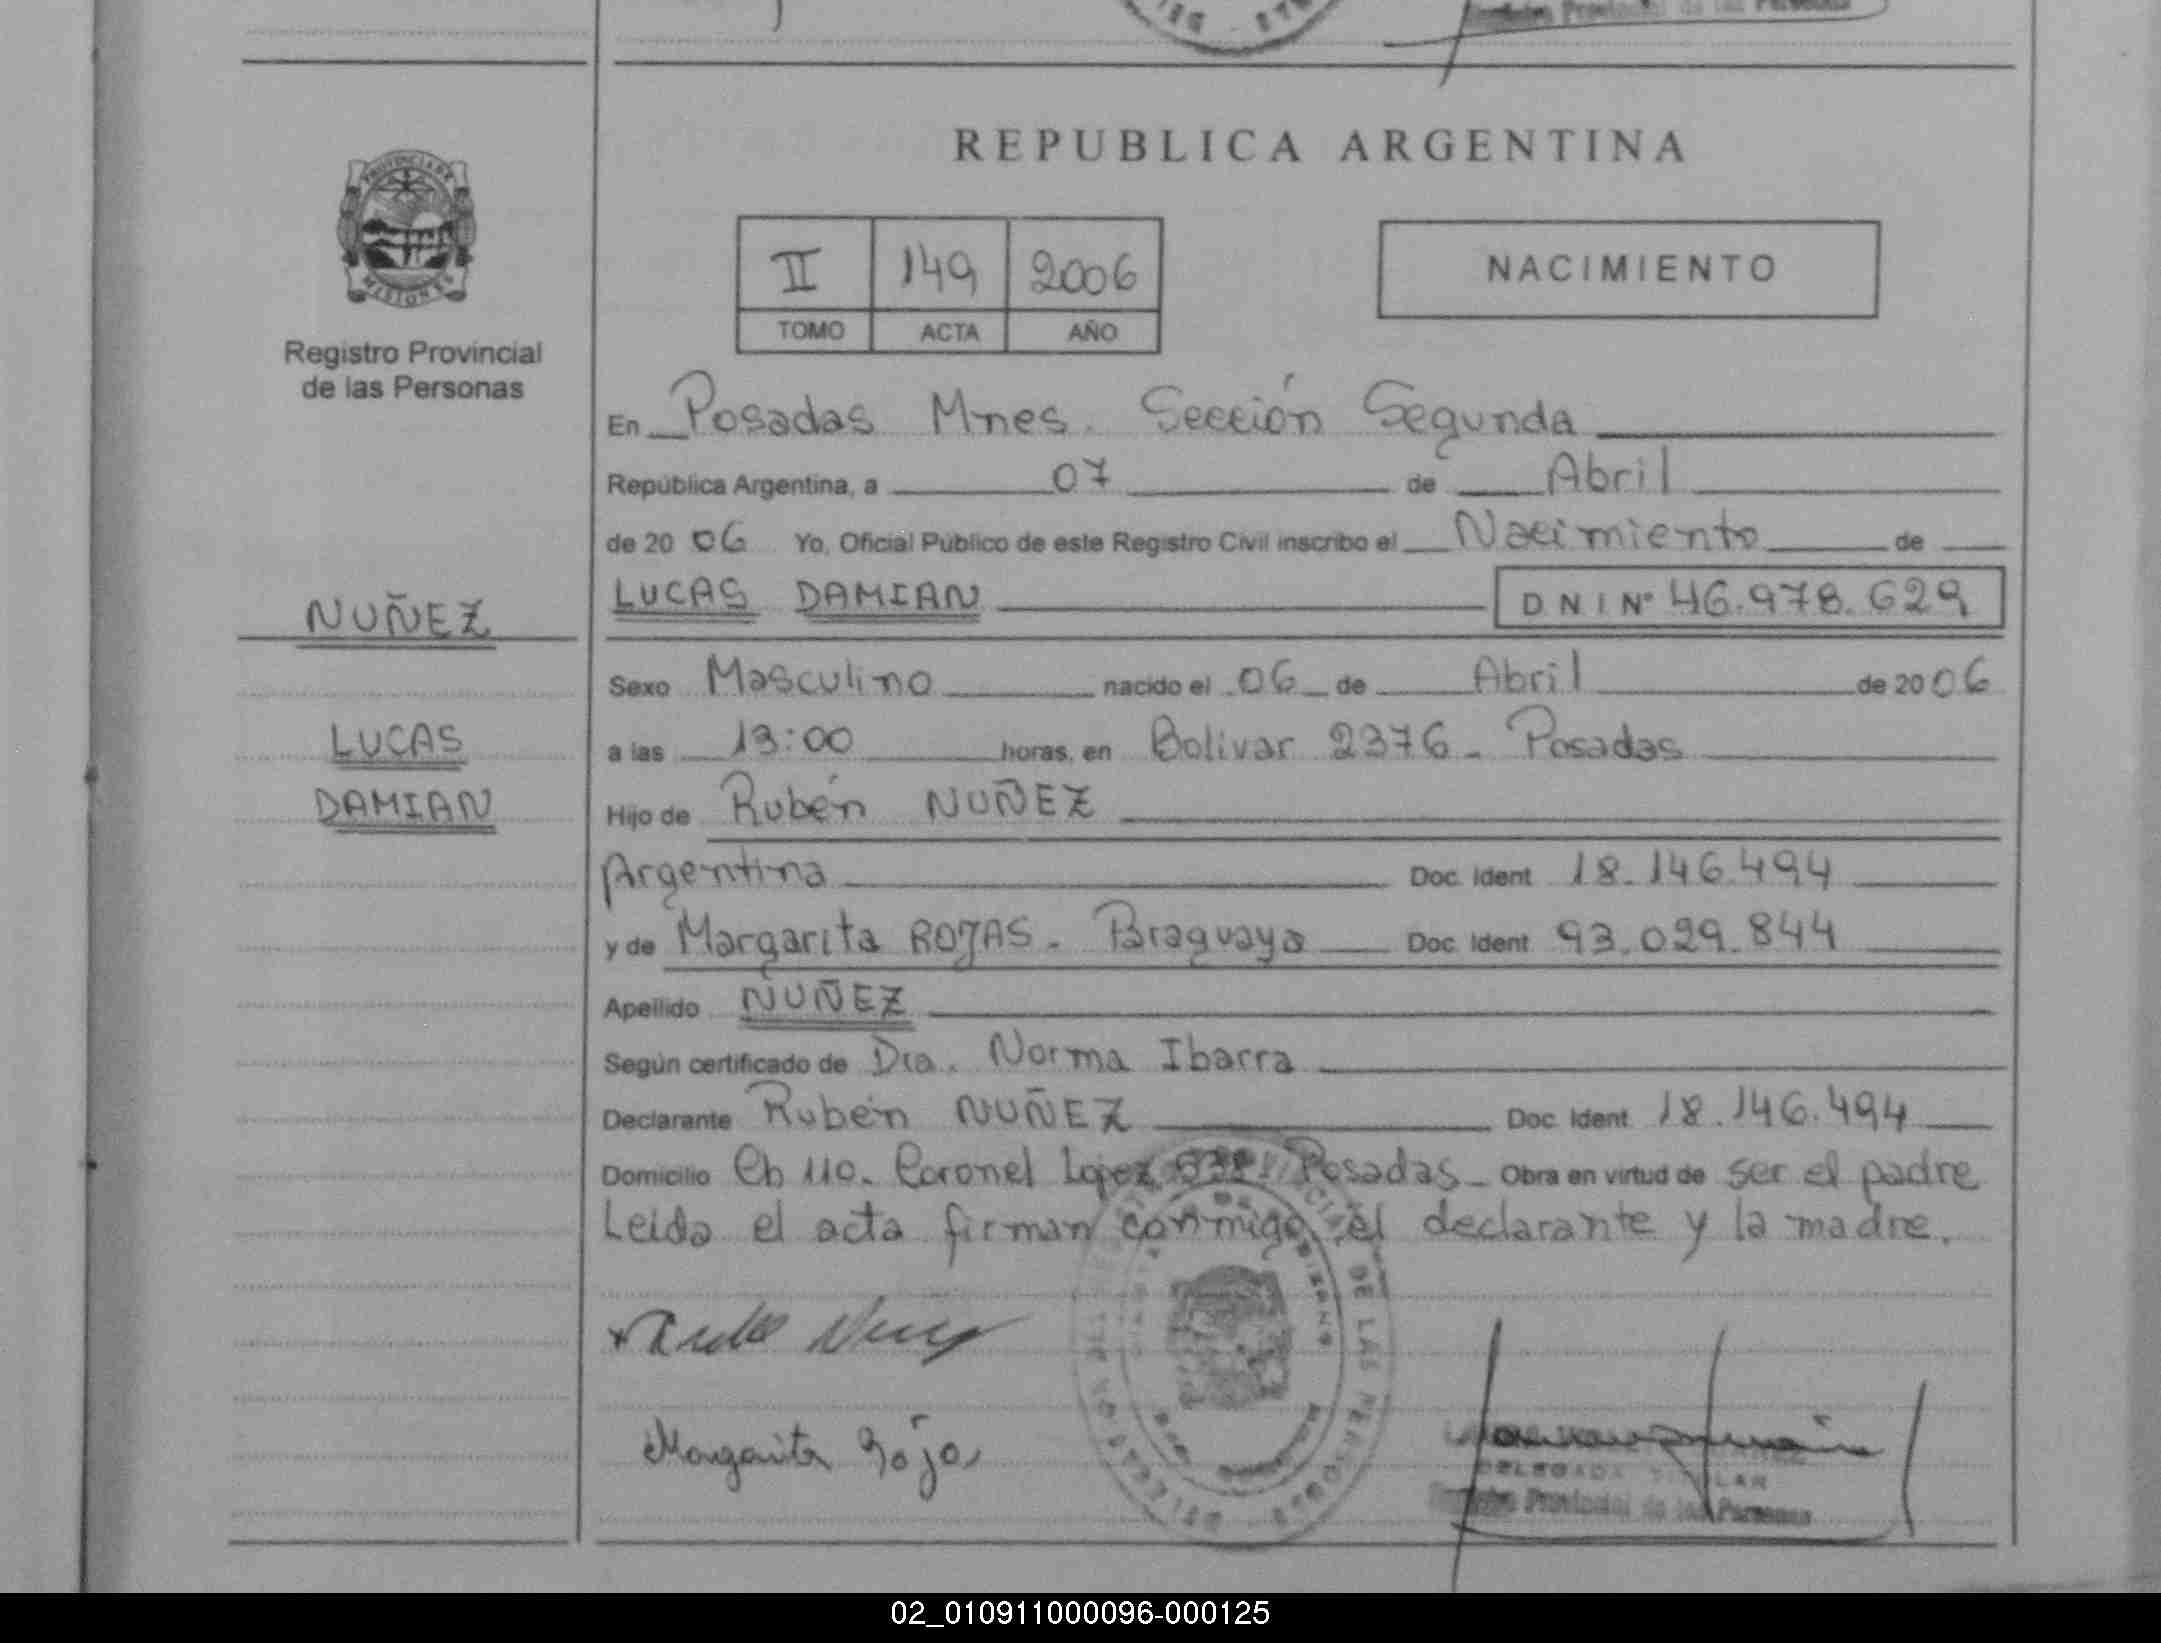 REPUBLICA ARGENTINA
PROVINCIA DE
MISIONES
Registro Provincial
de las Personas
II 149 2006
TOMO ACTA AÑO
NACIMIENTO
En Posadas Mnes. Sección Segunda
República Argentina, a 07 de Abril
de 20 06 Yo, Oficial Público de este Registro Civil inscribo el Nacimiento de
NUÑEZ
LUCAS
DAMIAN
LUCAS DAMIAN DNI Nº 46.978.629
Sexo Masculino nacido el 06 de Abril de 20 06
a las 13:00 horas, en Bolivar 2376 - Posadas
Hijo de Rubén NUÑEZ
Argentina Doc. Ident 18.146.494
y de Margarita ROJAS. Paraguaya Doc. Ident 93.029.844
Apellido NUÑEZ
Según certificado de Dra. Norma Ibarra
Declarante Rubén NUÑEZ Doc. Ident 18.146.494
Domicilio Ch 110. Coronel Lopez Posadas - Obra en virtud de ser el padre
Leida el acta firman conmigo el declarante y la madre.
Margarita Rojas
DELEGADA TITULAR
Registro Provincial de las Personas
02_010911000096-000125